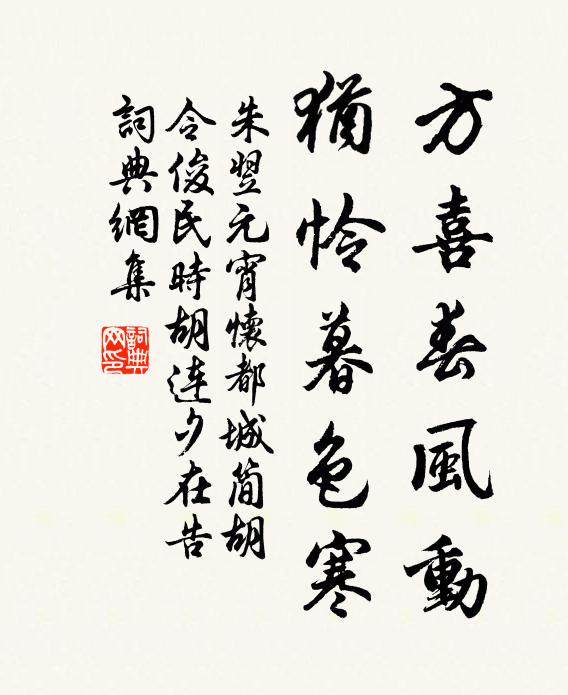 方喜春風動
猶怜暮色寒
朱翌元宵懷都城簡胡
令俊民時胡連夕在告
詞典網集
詞典網印